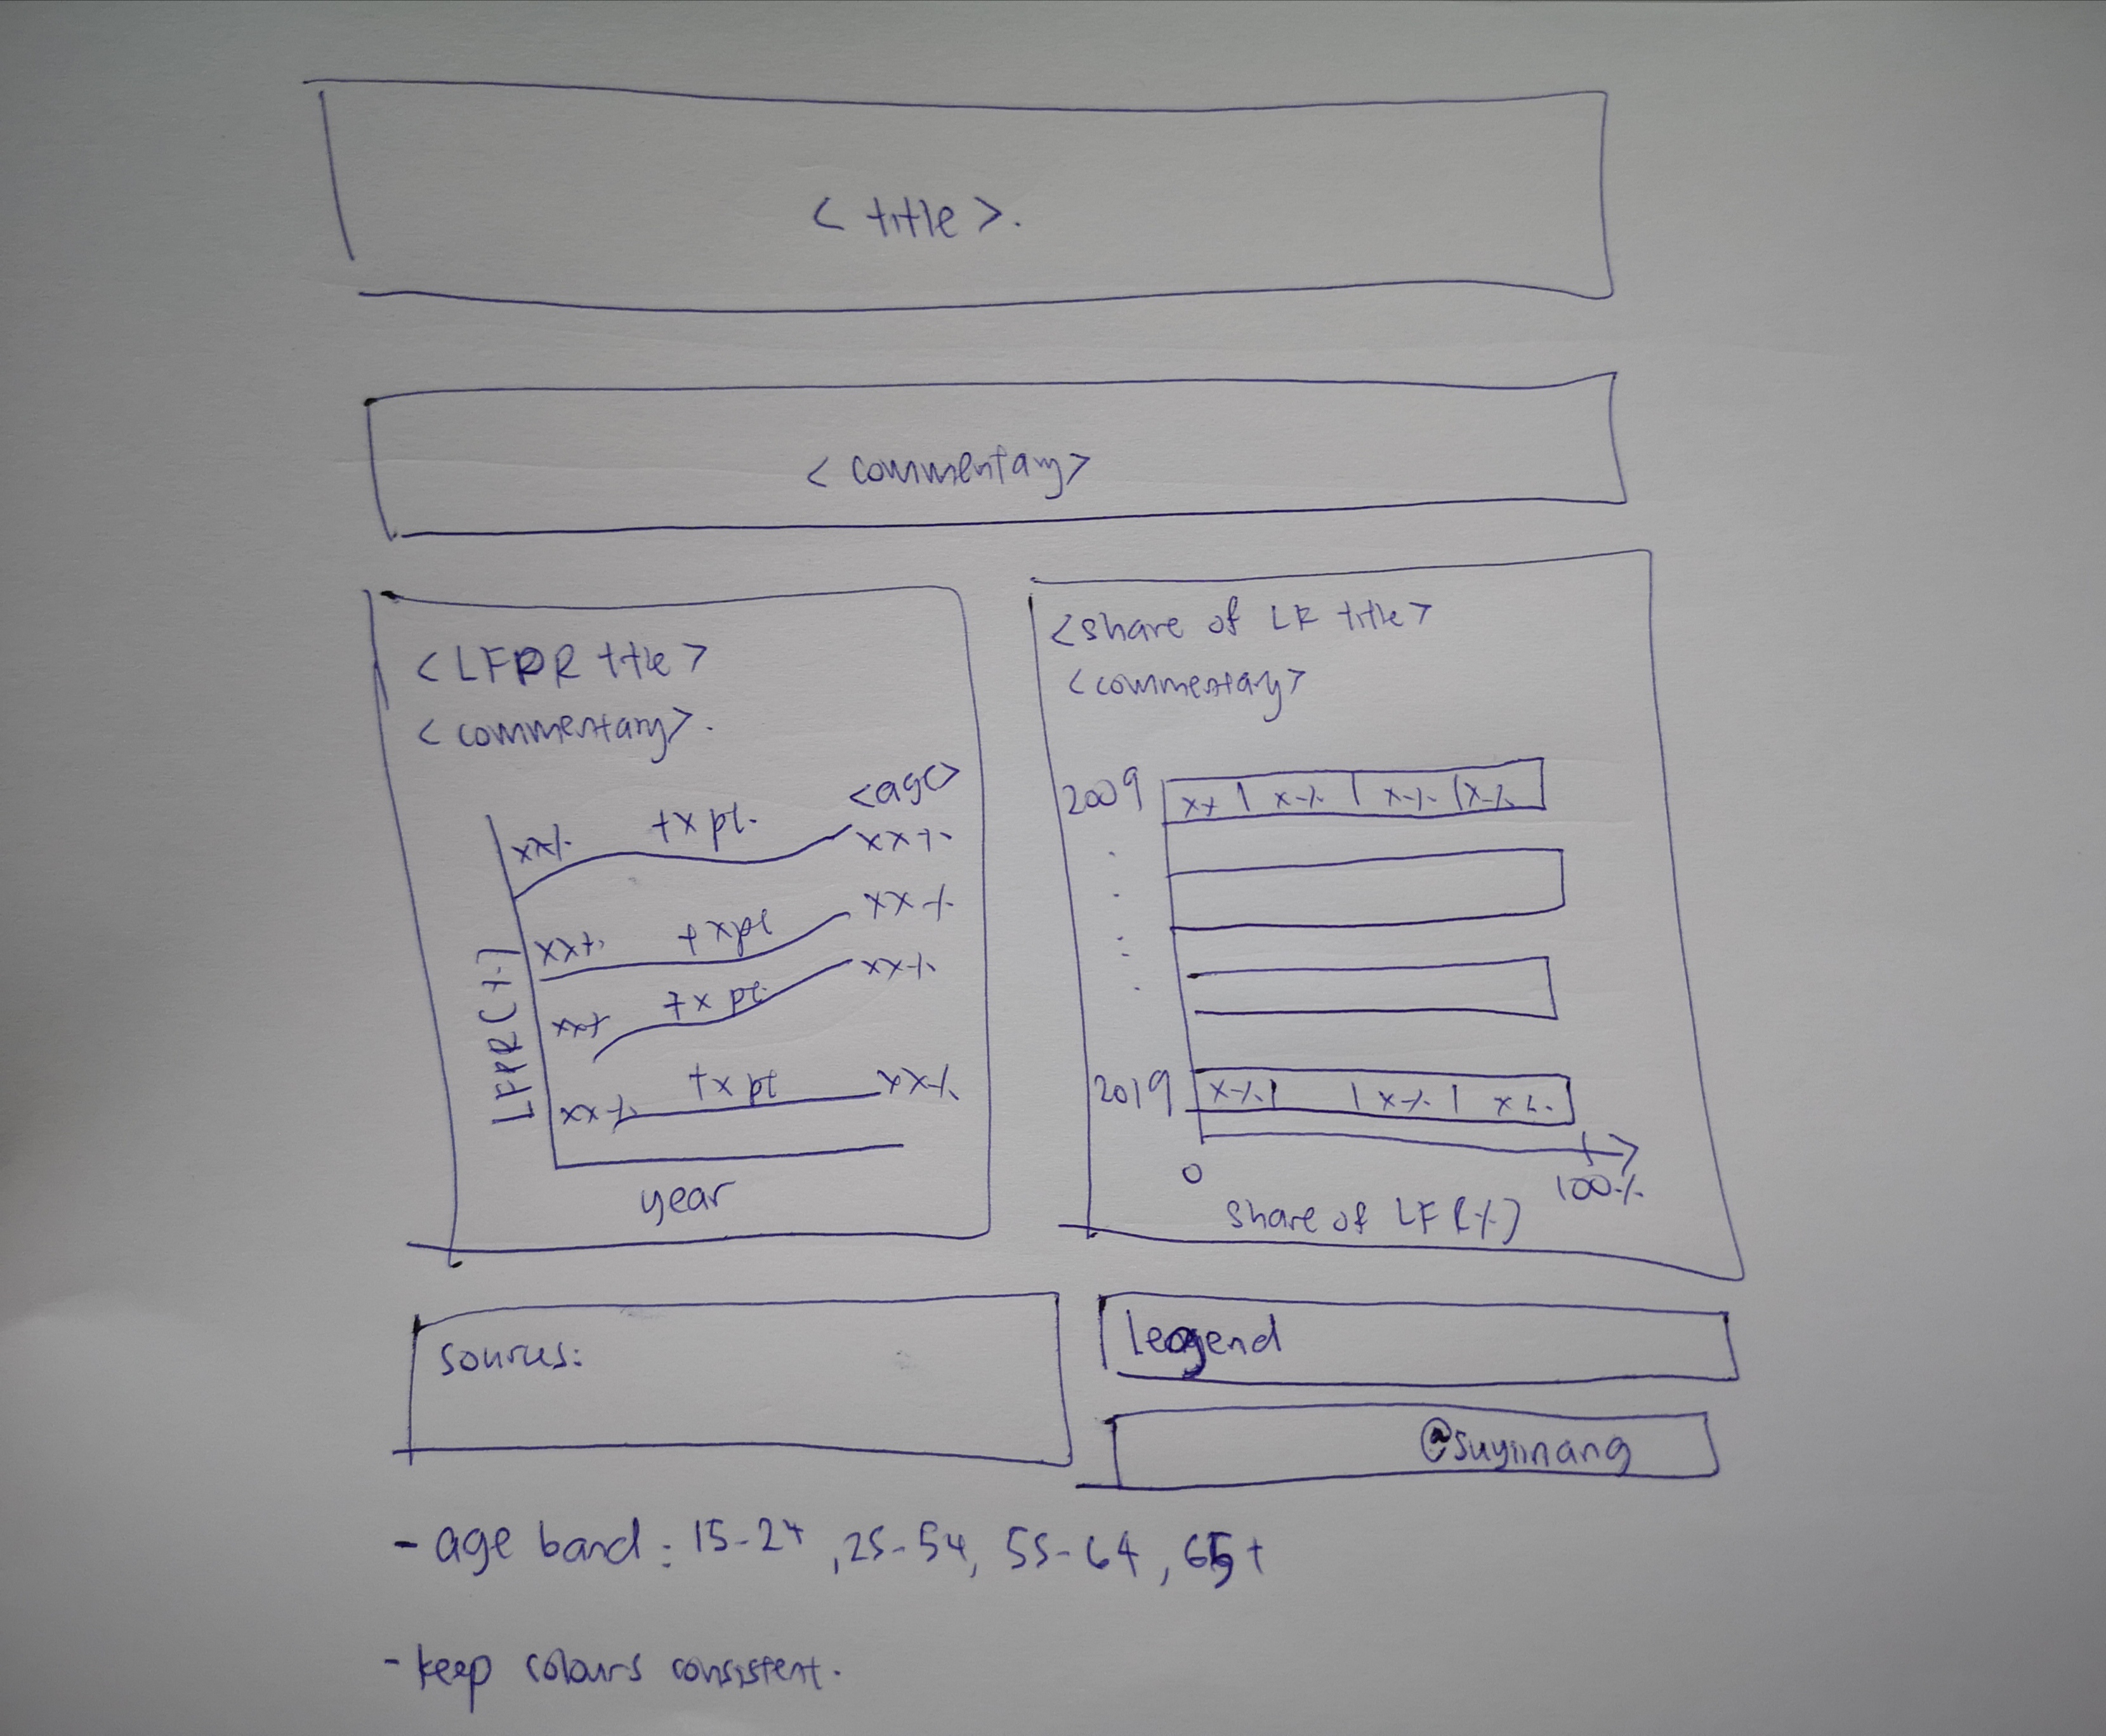 < title >.
< commentary >
< LFPR ttle >
< commentary >.
<age>
xx% +x pt. xx%
xx% +x pt xx%
xx% +x pt. xx%
xx% +x pt xx%
LFPR (%)
year
< share of LF title >
< commentary >
2009 x% | x% | x% | x%
2019 x% | | x% | x%.
0 100%
share of LF (%)
sources:
legend
@suyiinang
- age band : 15-24, 25-54, 55-64, 65+
- keep colours consistent.